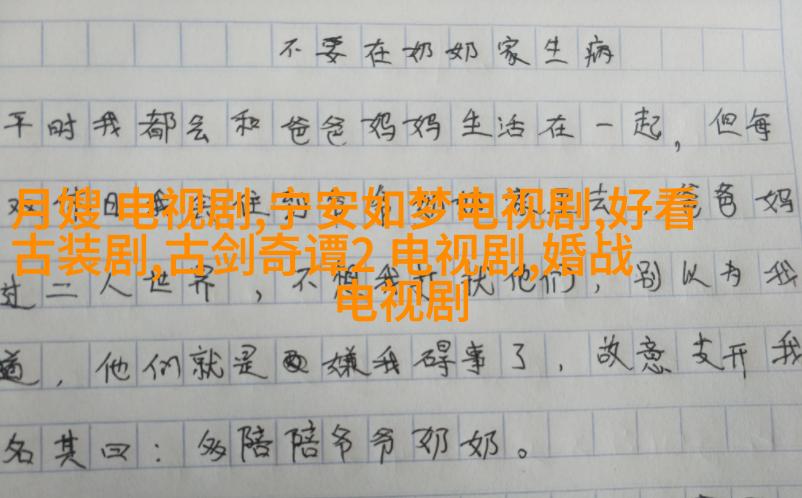 不要在奶奶家生病
平时我都会和爸爸妈妈生活在一起，但每
月嫂 电视剧,宁安如梦电视剧,好看
爸妈
古装剧,古剑奇谭2 电视剧,婚战
电视剧
过二人世界，不想我打扰他们，别以为我
道，他们就是嫌我碍事了，故意支开我
名其曰：多陪陪爷爷奶奶。